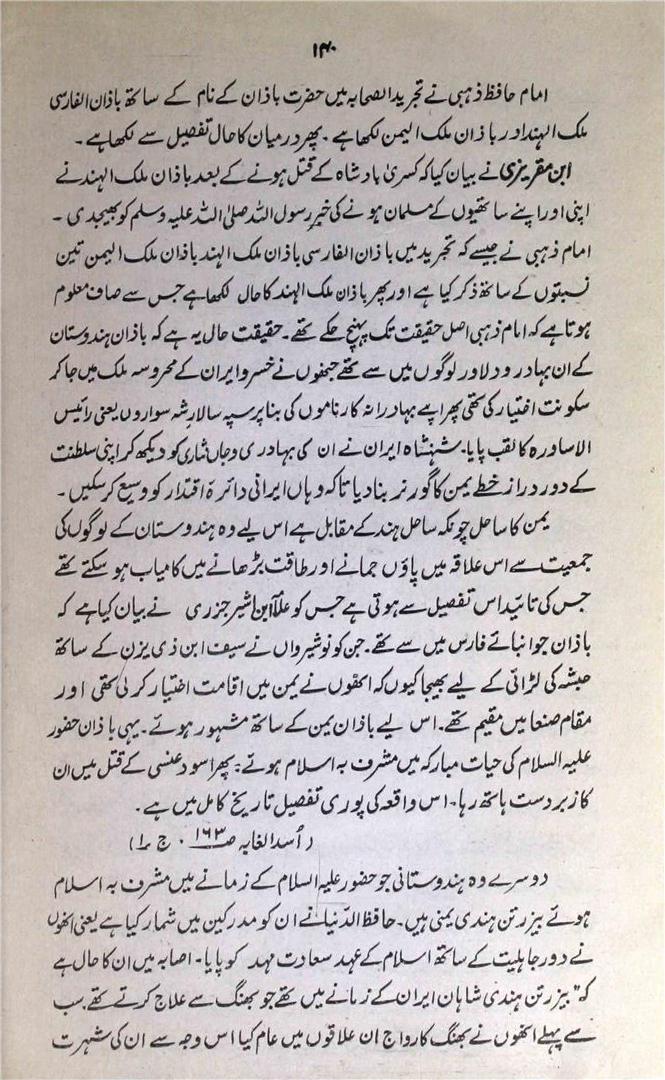 ۱۴۰
امام حافظ ذہبی نے تجرید الصحابہ میں حضرت باذان کے نام کے ساتھ باذان الفارسی
ملک الہند اور باذان ملک الیمن لکھا ہے ۔ پھر درمیان کا حال تفصیل سے لکھا ہے ۔
ابن مقریزی نے بیان کیا کہ کسریٰ بادشاہ کے قتل ہونے کے بعد باذان ملک الہند نے
اپنی اور اپنے ساتھیوں کے مسلمان ہونے کی خبر رسول اللہ صلی اللہ علیہ وسلم کو بھیجدی ۔
امام ذہبی نے جیسے کہ تجرید میں باذان الفارسی باذان ملک الہند باذان ملک الیمن تین
نسبتوں کے ساتھ ذکر کیا ہے اور پھر باذان ملک الہند کا حال لکھا ہے جس سے صاف معلوم
ہوتا ہے کہ امام ذہبی اصل حقیقت تک پہنچ چکے تھے ۔ حقیقت حال یہ ہے کہ باذان ہندوستان
کے ان بہادر و دلاور لوگوں میں سے تھے جنھوں نے خسرو ایران کے محروسہ ملک میں جا کر
سکونت اختیار کی تھی پھر اپنے بہادرانہ کارناموں کی بنا پر سپہ سالار شہ سواروں یعنی رائیس
الاساورہ کا لقب پایا۔ شہنشاہ ایران نے ان کی بہادری و جاں نثاری کو دیکھ کر اپنی سلطنت
کے دور دراز خطے یمن کا گورنر بنا دیا تاکہ وہاں ایرانی دائرہ اقتدار کو وسیع کر سکیں ۔
یمن کا ساحل چونکہ ساحل ہند کے مقابل ہے اس لیے وہ ہندوستان کے لوگوں کی
جمعیت سے اس علاقہ میں پاؤں جمانے اور طاقت بڑھانے میں کامیاب ہو سکتے تھے
جس کی تائید اس تفصیل سے ہوتی ہے جس کو علامہ ابن اثیر جزری نے بیان کیا ہے کہ
باذان جو ابنائے فارس میں سے تھے ۔ جن کو نوشیرواں نے سیف ابن ذی یزن کے ساتھ
حبشہ کی لڑائی کے لیے بھیجا کیوں کہ انھوں نے یمن میں اقامت اختیار کر لی تھی اور
مقام صنعا میں مقیم تھے ۔ اس لیے باذان یمن کے ساتھ مشہور ہوئے ۔ یہی باذان حضور
علیہ السلام کی حیات مبارکہ میں مشرف بہ اسلام ہوئے ۔ پھر اسود عنسی کے قتل میں ان
کا زبردست ہاتھ رہا ۔ اس واقعہ کی پوری تفصیل تاریخ کامل میں ہے ۔
(اُسد الغابہ ص ۱۶۳ ۔ ج ۱)
دوسرے وہ ہندوستانی جو حضور علیہ السلام کے زمانے میں مشرف بہ اسلام
ہوئے بیزرتن ہندی یمنی ہیں ۔ حافظ الدنیا نے ان کو مدرکین میں شمار کیا ہے یعنی انھوں
نے دور جاہلیت کے ساتھ اسلام کے عہد سعادت مہد کو پایا ۔ اصابہ میں ان کا حال ہے
کہ "بیزرتن ہندی شاہان ایران کے زمانے میں تھے جو بھنگ سے علاج کرتے تھے ۔ سب
سے پہلے انھوں نے بھنگ کا رواج ان علاقوں میں عام کیا اس وجہ سے ان کی شہرت